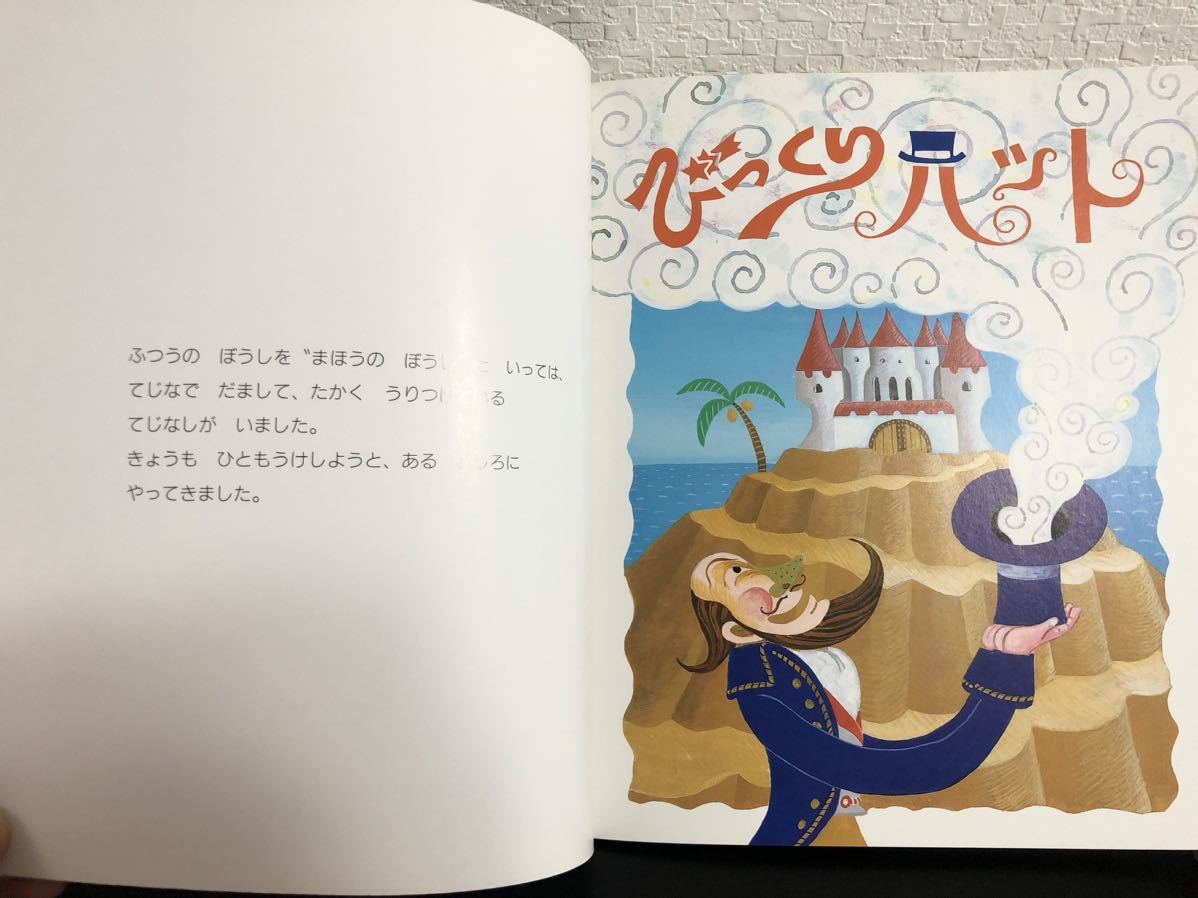 ふつうの ぼうしを〝まほうの ぼうし いっては、
てじなで だまして、たかく うりつけている
てじなしが いました。
きょうも ひともうけしようと、ある おしろに
やってきました。
びっくりハット